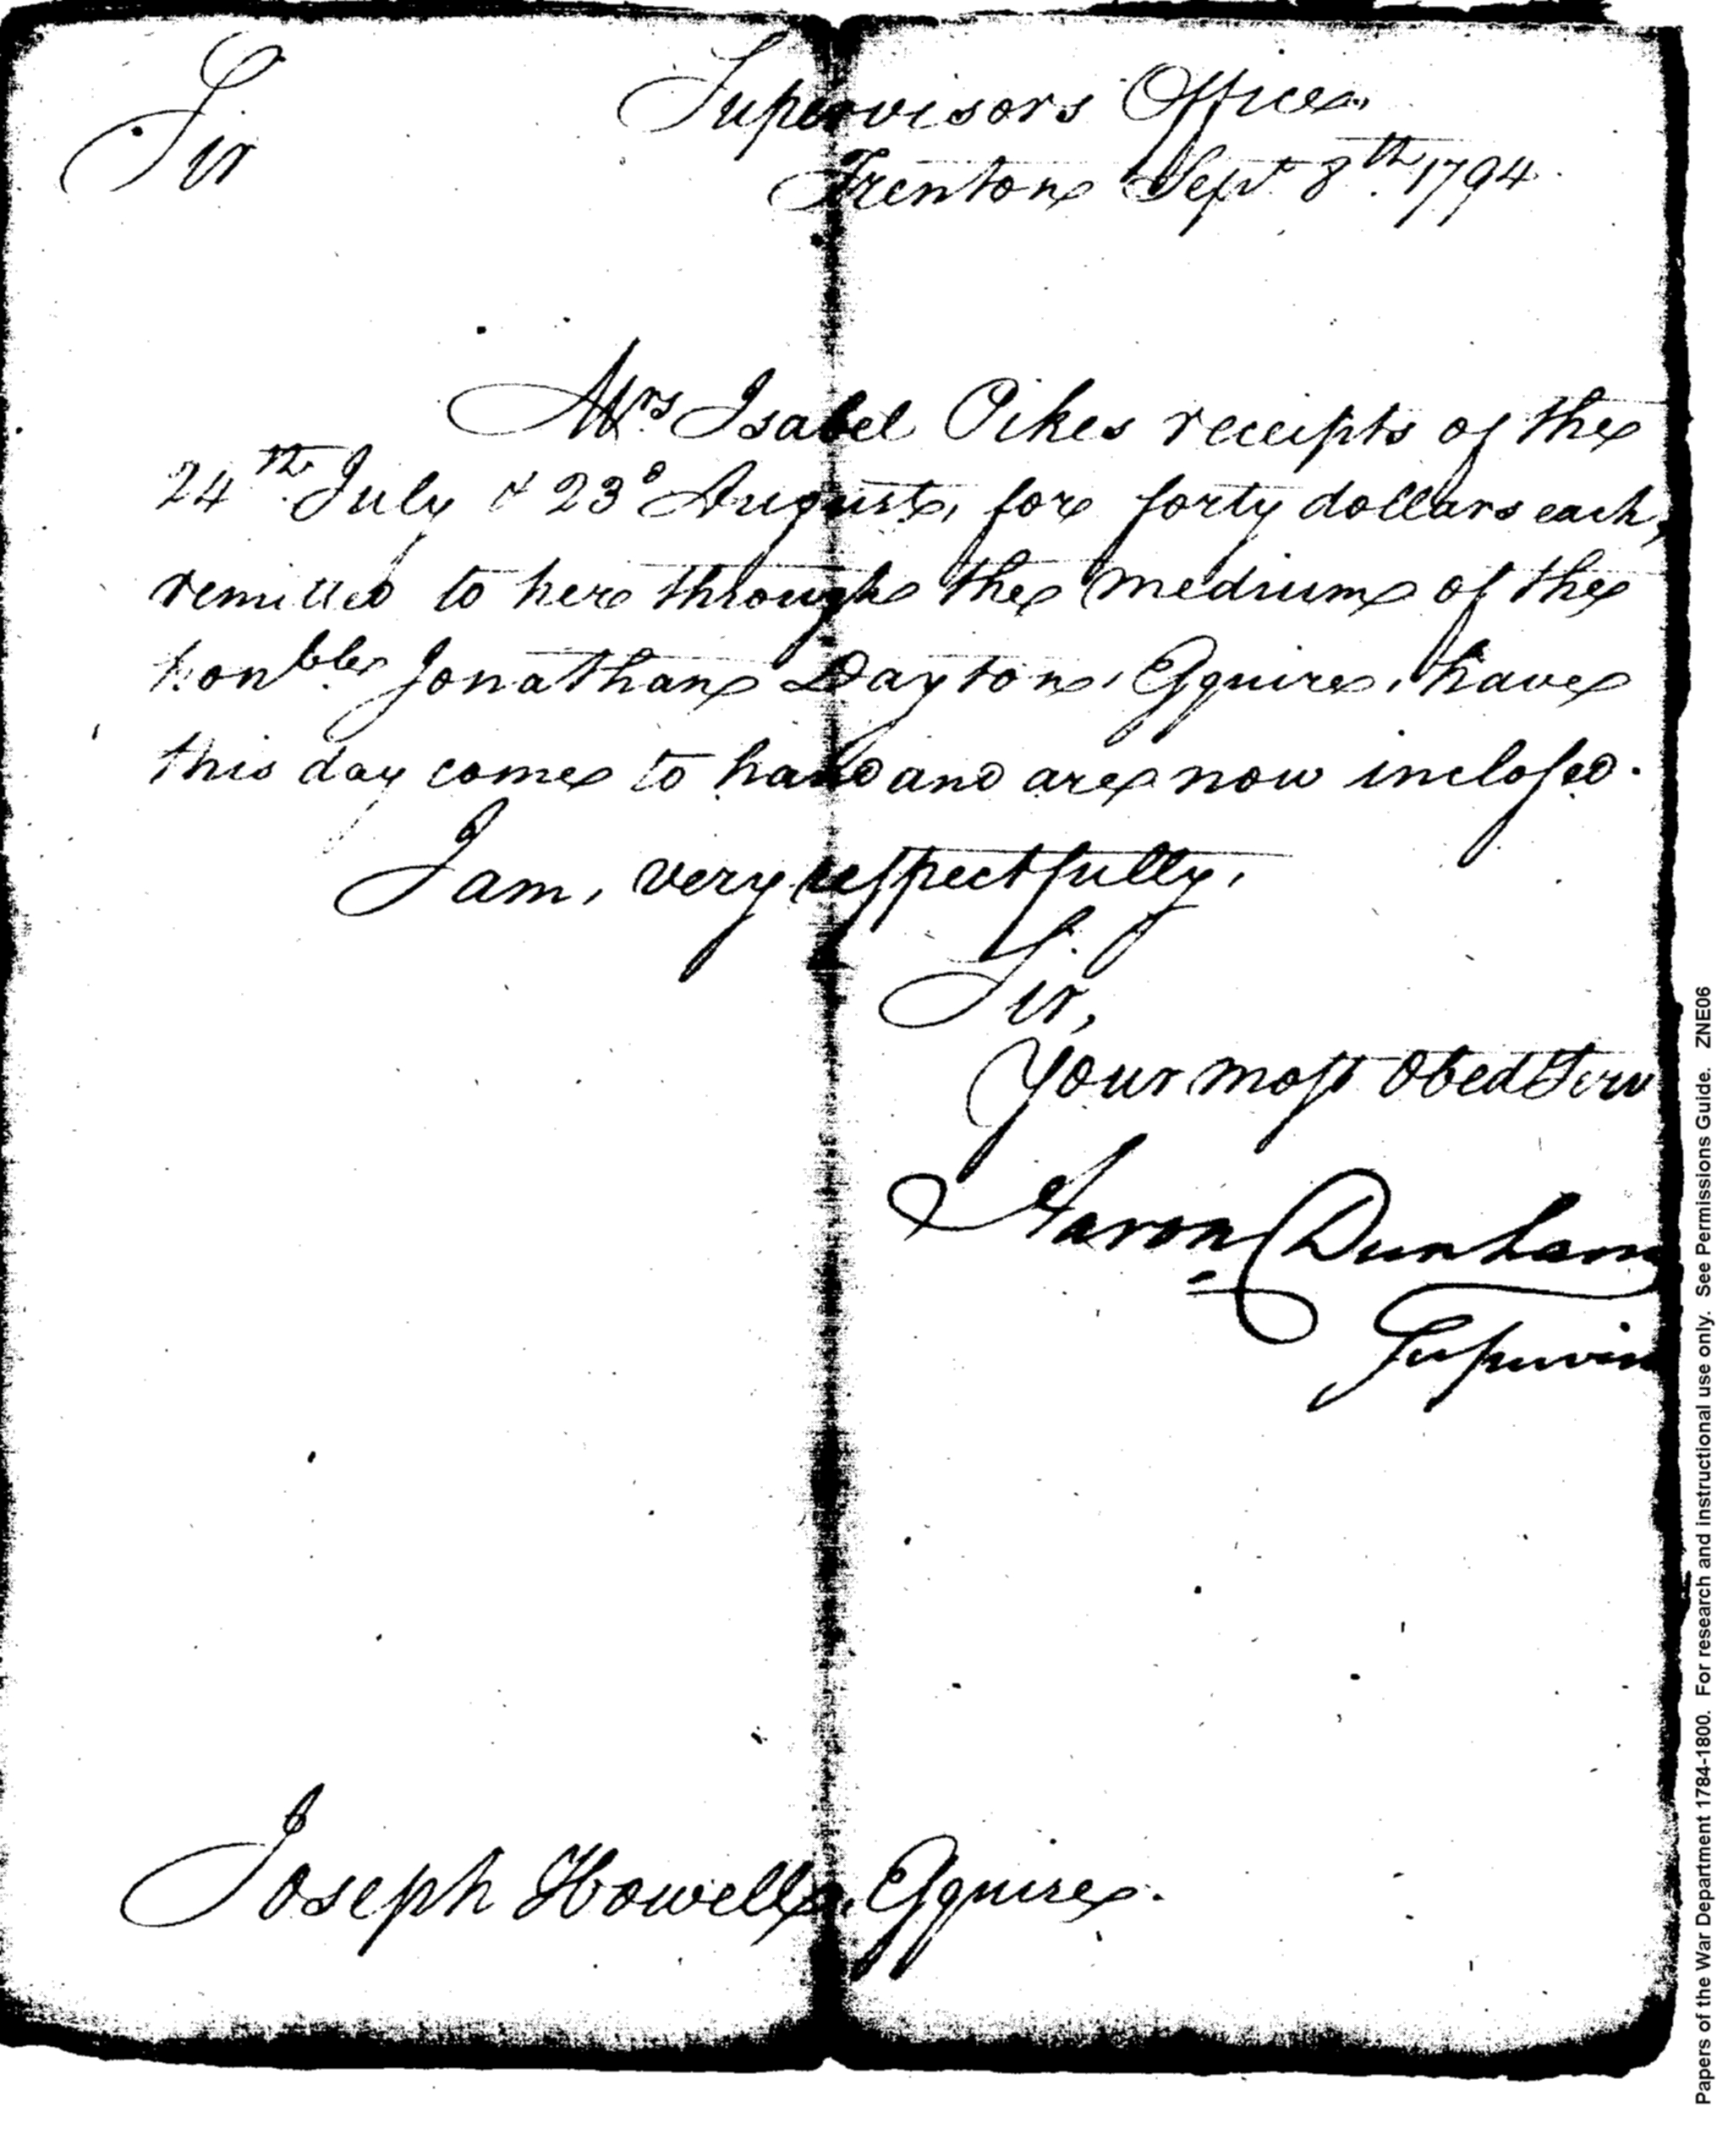 Sir
Supervisors Office,
Trenton Sept 8th 1794
Mrs Isabel Pikes receipts of the
24th July & 23d August, for forty dollars each,
remitted to her through the medium of the
honble Jonathan Dayton, Esquire, have
this day come to hand and are now inclosed.
I am, very respectfully,
Sir,
Your most Obed Serv
Aaron Dunham
Supervis
Joseph Howell, Esquire.
Papers of the War Department 1784-1800. For research and instructional use only. See Permissions Guide. ZNE06